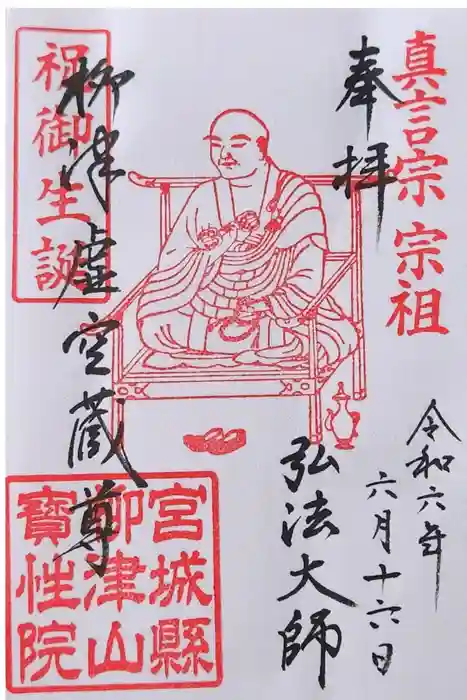 真言宗 宗祖
奉拝
令和六年
六月十六日
弘法大師
柳津虚空蔵尊
祝御生誕
宮城縣
柳津山
寳性院